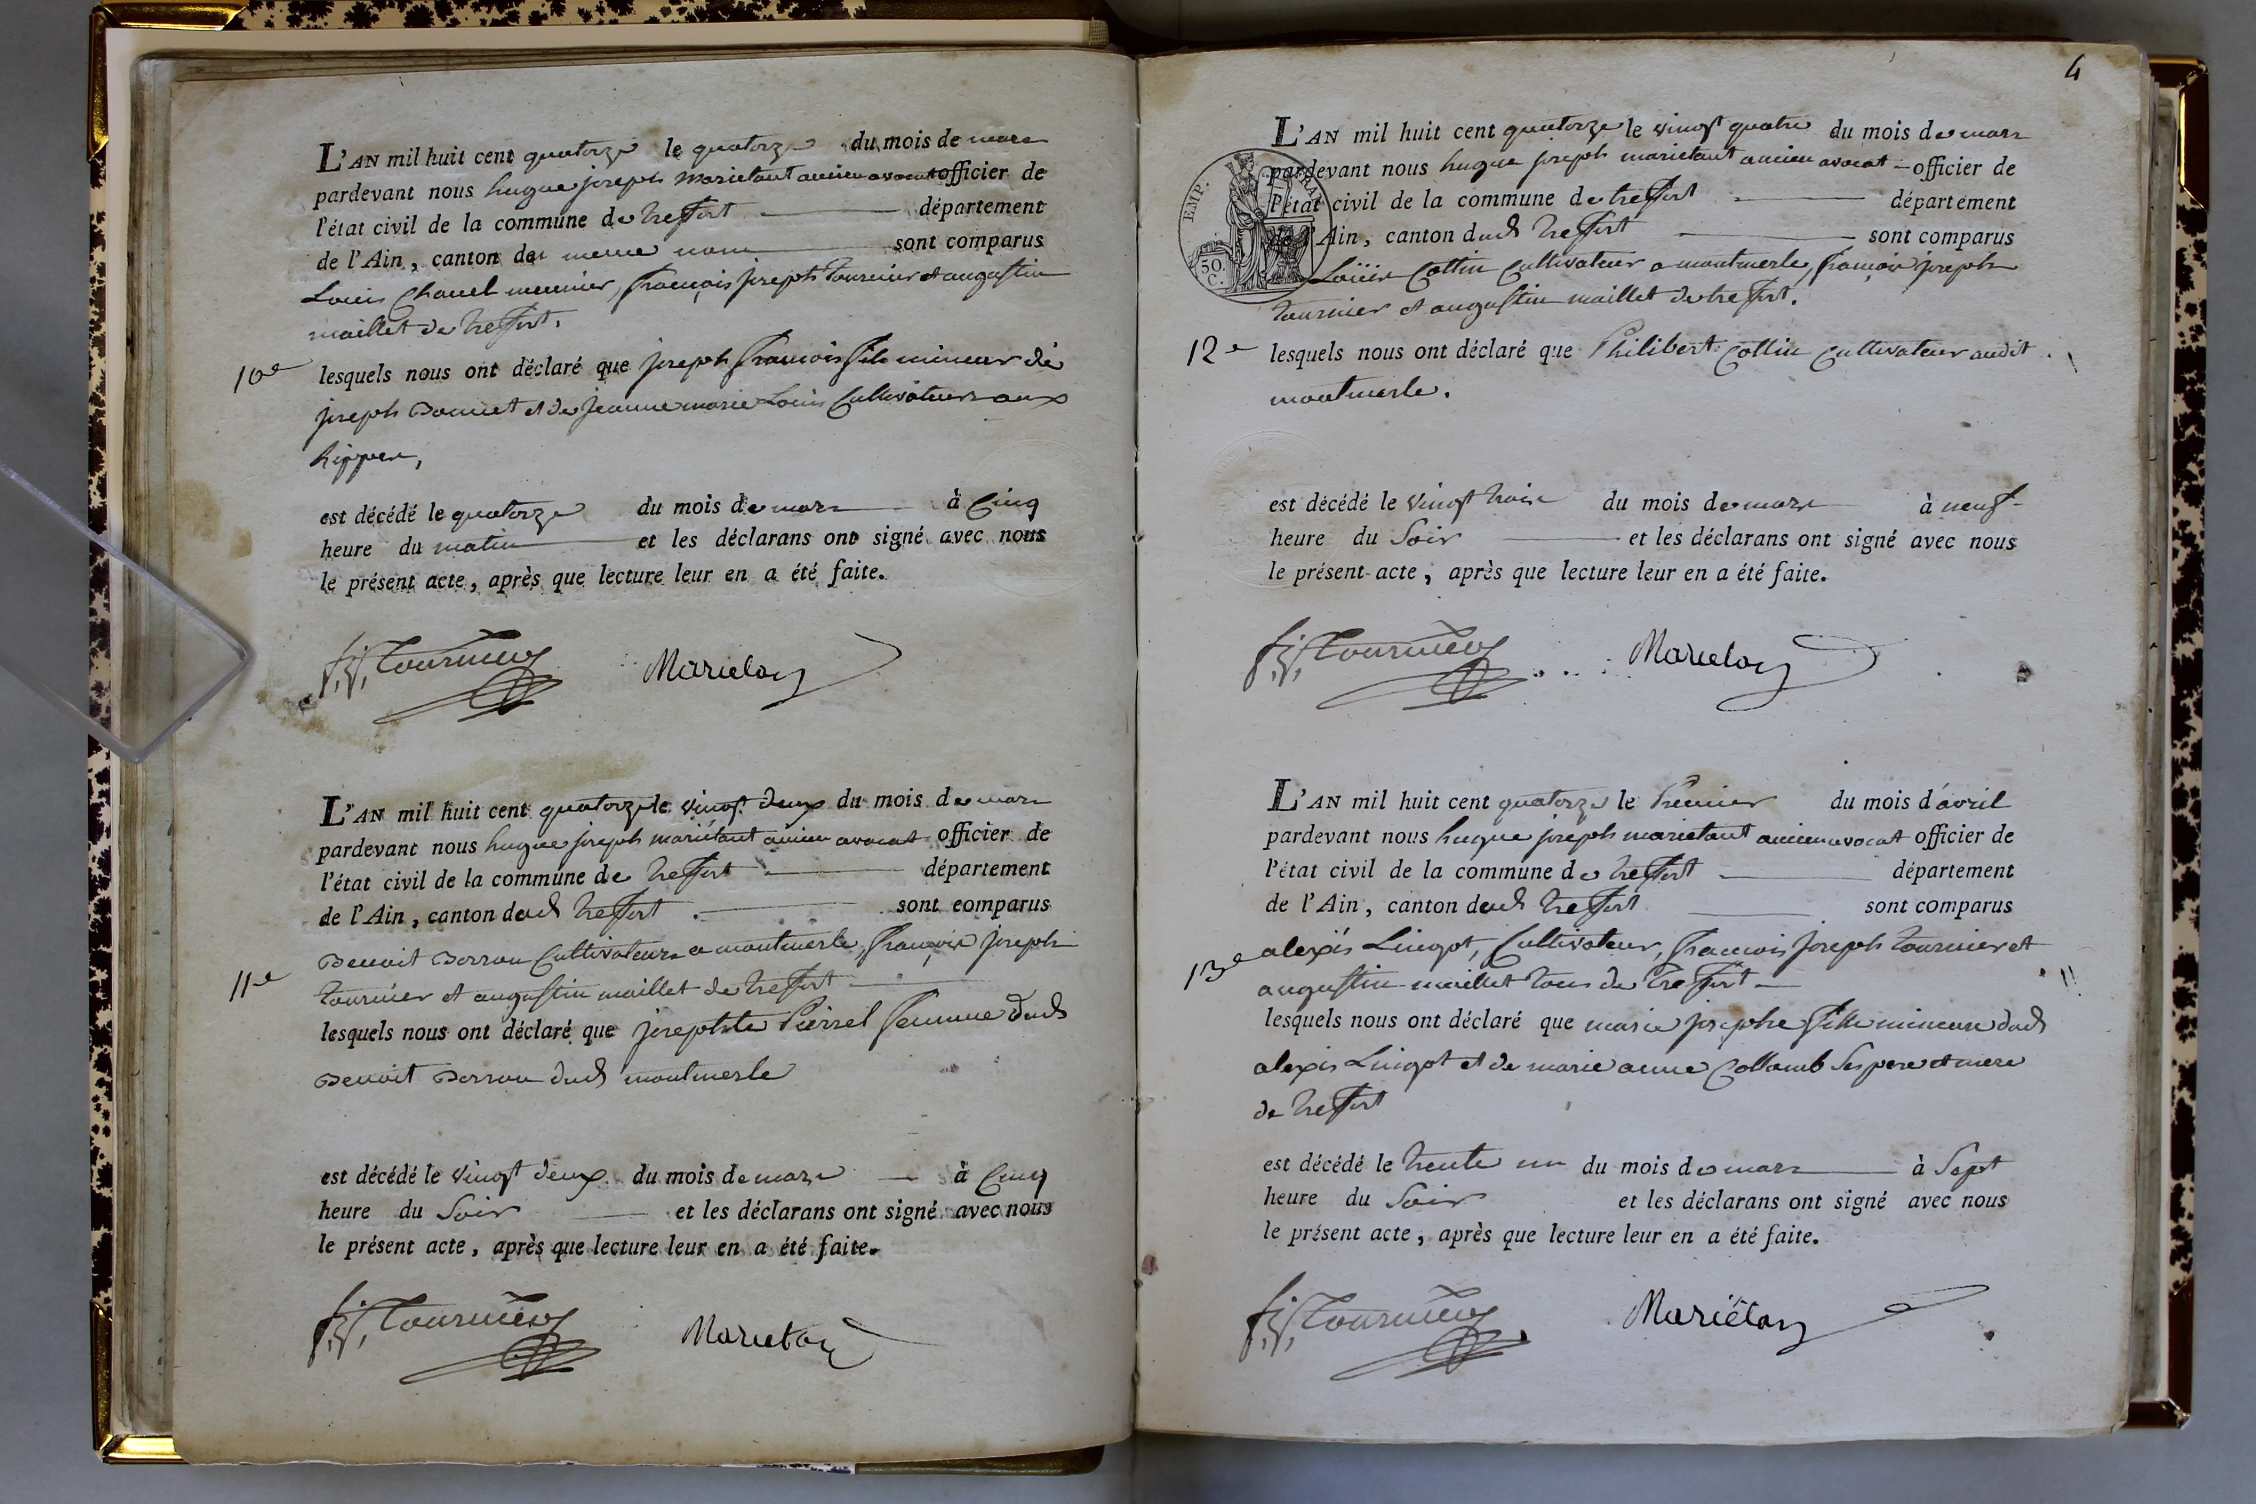 L'AN mil huit cent quatorze le quatorze du mois de mars
pardevant nous hugue joseph Marietant ancien avocat officier de
l'état civil de la commune de treffort département
de l'Ain, canton du meme nom sont comparus
Louis Chanel meunier, françois joseph tournier et augustin
maillet de treffort.
10e lesquels nous ont déclaré que joseph francois fils mineur de
joseph Bonnet et de jeanne marie Louis Cultivateurs aux
Rippes,
est décédé le quatorze du mois de mars à Cinq
heure du matin et les déclarans ont signé avec nous
le présent acte, après que lecture leur en a été faite.
f. j. Tournier Marietan
L'AN mil huit cent quatorze le vingt deux du mois de mars
pardevant nous hugue joseph mariétant ancien avocat officier de
l'état civil de la commune de treffort département
de l'Ain, canton dud treffort sont comparus
Benoit Borron Cultivateur a montmerle, françois joseph
11e tournier et augustin maillet de treffort
lesquels nous ont déclaré que josephte Pirrel femme dud
Benoit Borron dud montmerle
est décédé le vingt deux du mois de mars à Cinq
heure du Soir et les déclarans ont signé avec nous
le présent acte, après que lecture leur en a été faite.
f. j. Tournier Marietan
4
L'AN mil huit cent quatorze le vingt quatre du mois de mars
pardevant nous hugue joseph marietant ancien avocat officier de
l'état civil de la commune de treffort département
de l'Ain, canton dud treffort sont comparus
EMP. FRAN.
50. C.
Louis Cottin Cultivateur a montmerle, françois joseph
tournier et augustin maillet de treffort.
12e lesquels nous ont déclaré que Philibert Cottin Cultivateur audit
montmerle.
est décédé le vingt trois du mois de mars à neuf
heure du Soir et les déclarans ont signé avec nous
le présent acte, après que lecture leur en a été faite.
f. j. Tournier Marietan
L'AN mil huit cent quatorze le Premier du mois d'avril
pardevant nous hugue joseph marietant ancien avocat officier de
l'état civil de la commune de treffort département
de l'Ain, canton dud treffort sont comparus
alexis Lingot, Cultivateur, francois joseph tournier et
13e augustin maillet tous de treffort
lesquels nous ont déclaré que marie josephe fille mineure dud
alexis Lingot et de marie anne Collomb Ses pere et mere
de treffort
est décédé le trente un du mois de mars à Sept
heure du Soir et les déclarans ont signé avec nous
le présent acte, après que lecture leur en a été faite.
f. j. Tournier Mariétan